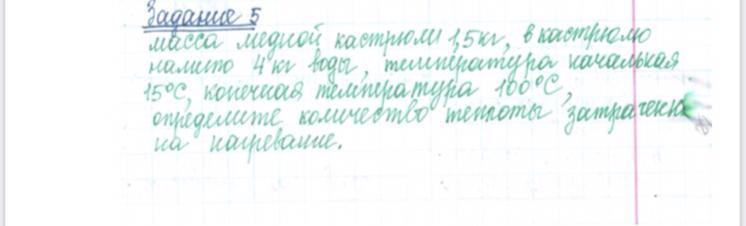 Задание 5
масса медной кастрюли 1,5кг, в кастрюлю
налито 4кг воды, температура начальная
15°С, конечная температура 100°С,
определите количество теплоты затраченн
на нагревание.